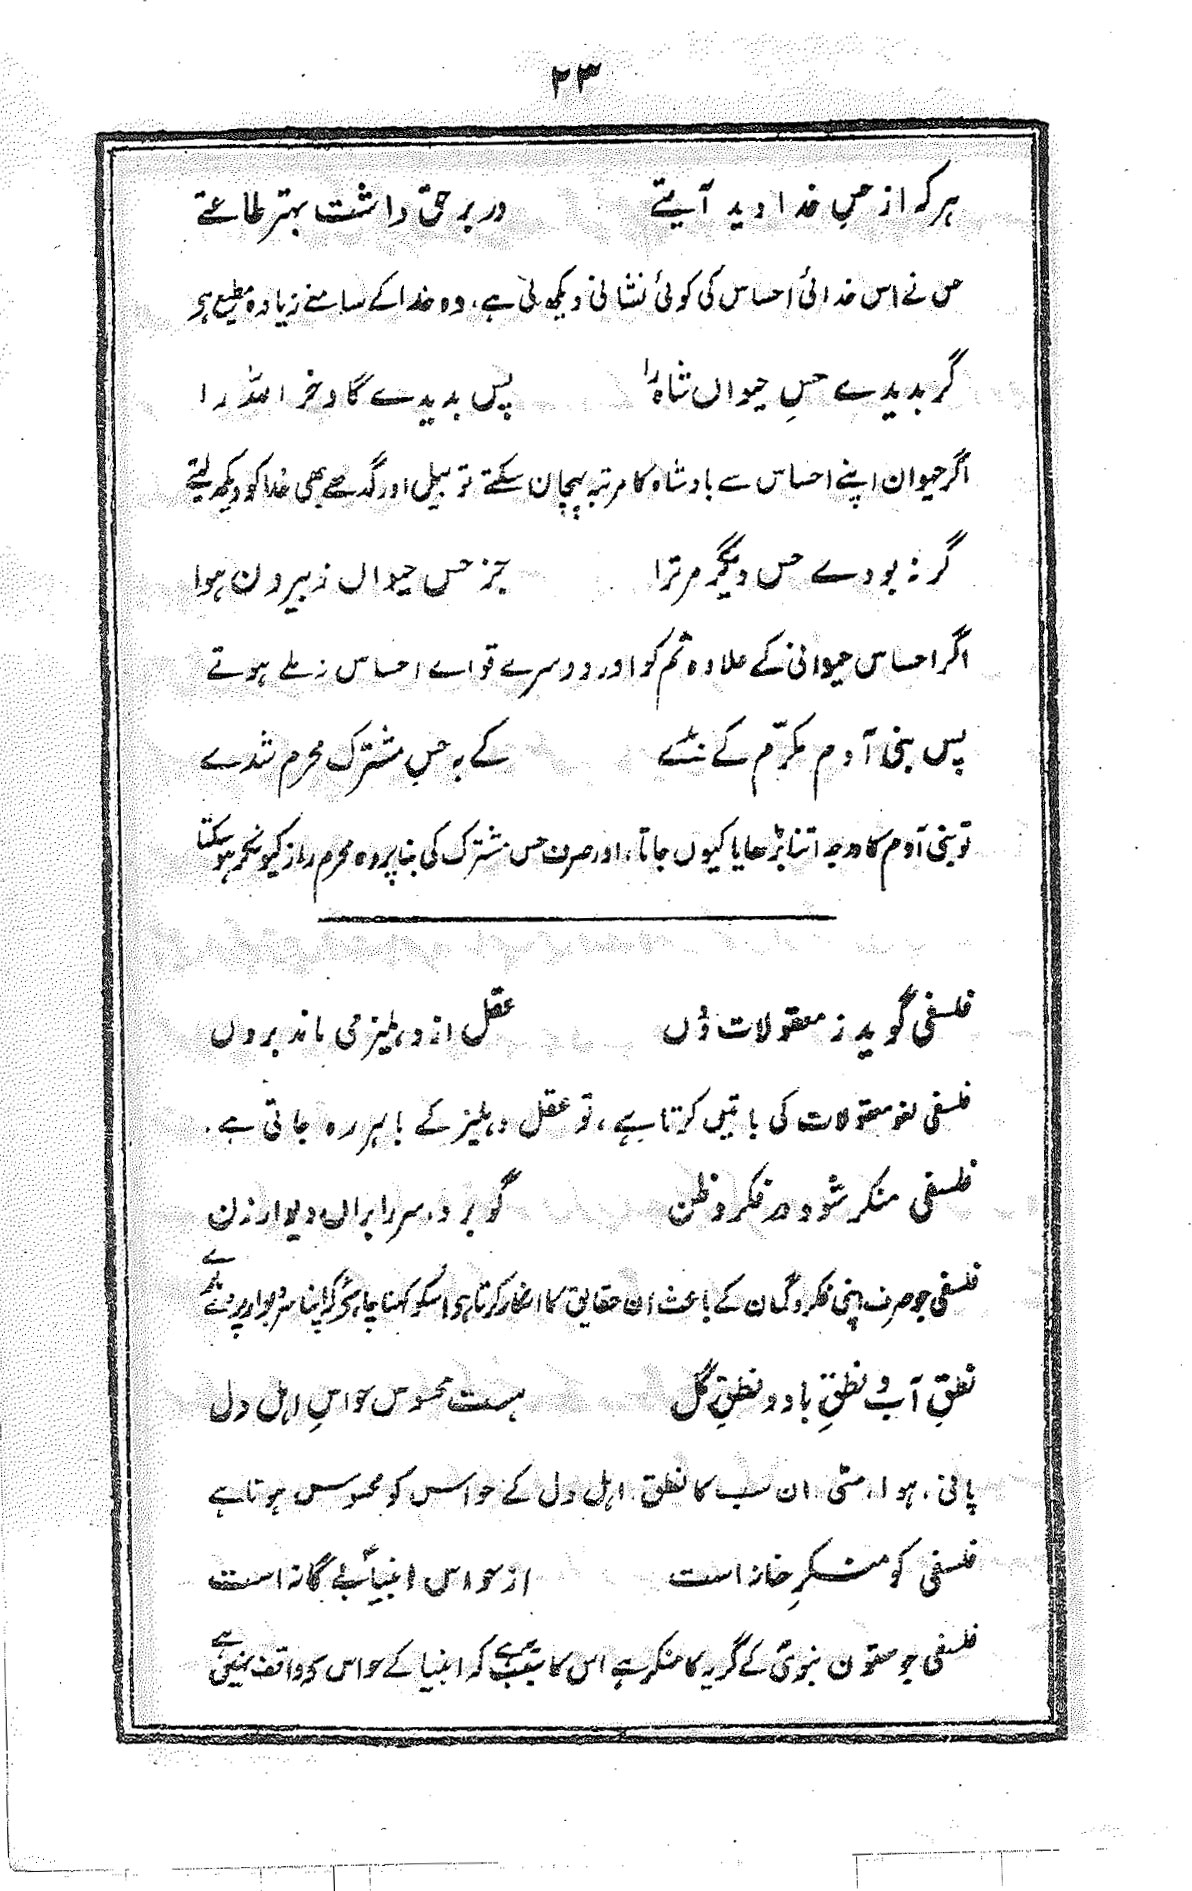 ۲۳
ہر کہ از حسِ خدا دید آیتے در برِ حق داشت بہتر طاعتے
جس نے اس خدائی احساس کی کوئی نشانی دیکھ لی ہے، وہ خدا کے سامنے زیادہ مطیع ہو
گر بدیدے حسِ حیواں شاہ را پس بدیدے گاو خر اللہ را
اگر حیوان اپنے احساس سے بادشاہ کا مرتبہ پہچان سکتے تو بیل اور گدھے بھی خدا کو دیکھ لیتے
گر نہ بودے حس دیگر مر ترا جز حس حیواں ز بیرون ہوا
اگر احساس حیوانی کے علاوہ تم کو اور دوسرے قواے احساس نہ ملے ہوتے
پس بنی آدم مکرّم کے بُدے کے بہ حسِ مشترک محرم شدے
تو بنی آدم کا درجہ اتنا بڑھایا کیوں جاتا، اور صرف حس مشترک کی بنا پر وہ محرم راز کیونکر ہو سکتا
فلسفی گوید ز معقولات دُوں عقل از دہلیز می ماند بروں
فلسفی لغو معقولات کی باتیں کرتا ہے، تو عقل دہلیز کے باہر رہ جاتی ہے۔
فلسفی منکر شود در فکر و ظن گو برو، سر را براں دیوار زن
فلسفی جو صرف اپنی فکر و گمان کے باعث ان حقایق کا انکار کرتا ہی اسکو کہنا چاہئے کہ اپنا سر دیوار پر دے مارے
نطقِ آب و نطقِ باد و نطقِ گل ہست محسوس حواسِ اہل دل
پانی، ہوا، مٹی، ان سب کا نطق، اہل دل کے حواس کو محسوس ہوتا ہے
فلسفی کو منکرِ حنانہ است از حواس انبیاؑ بے گانہ است
فلسفی جو ستون نبویؐ کے گریہ کا منکر ہے اس کا سبب یہ ہے کہ انبیا کے حواس سے واقف نہیں ہے